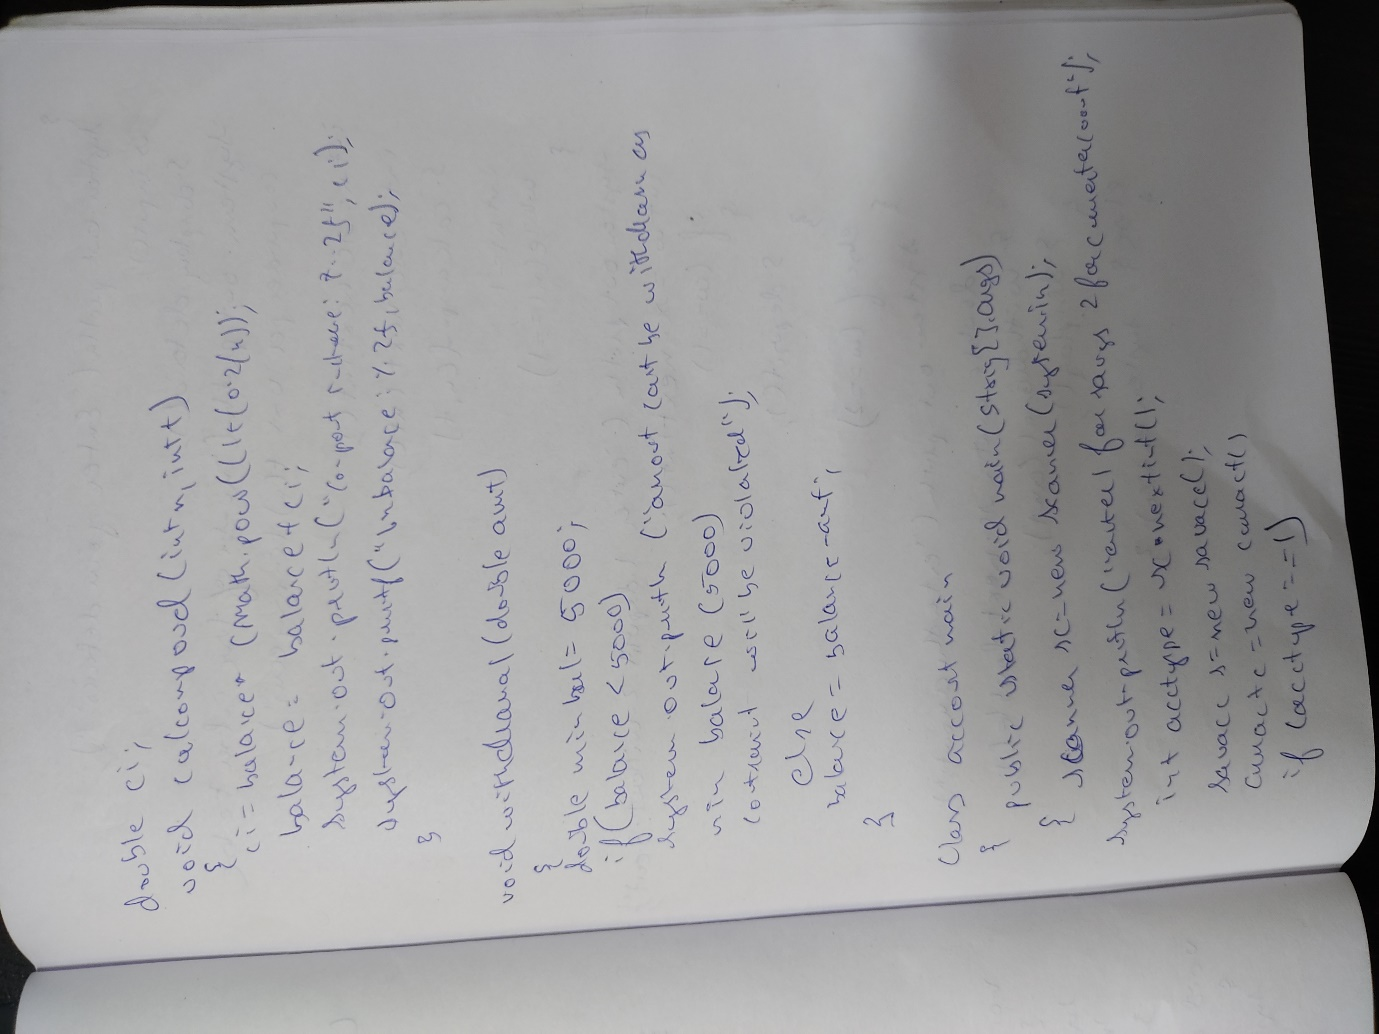 double ci;
void calcompound (int n, int t)
{
ci = balance * (Math.pow((1+(0.2/n));
balance = balance + ci;
System.out.println("Compost : %.2f", ci);
System.out.printf("\nbalance: %.2f, balance);
}
void withdrawal (double amt)
{
double min bal = 5000;
if (balance < 5000)
System.out.println ("amount cant be withdrawn as
min balance (5000)
will be violated");
else
balance = balance - amt;
}
Class account main
{
public static void main (String[], args)
{ Scanner sc = new Scanner (System.in);
System.out.println ("enter 1 for savgs 2 for current account");
int acctype = sc.nextint();
Savacc s = new savacc();
Curracc = new curract()
if (acctype == 1)